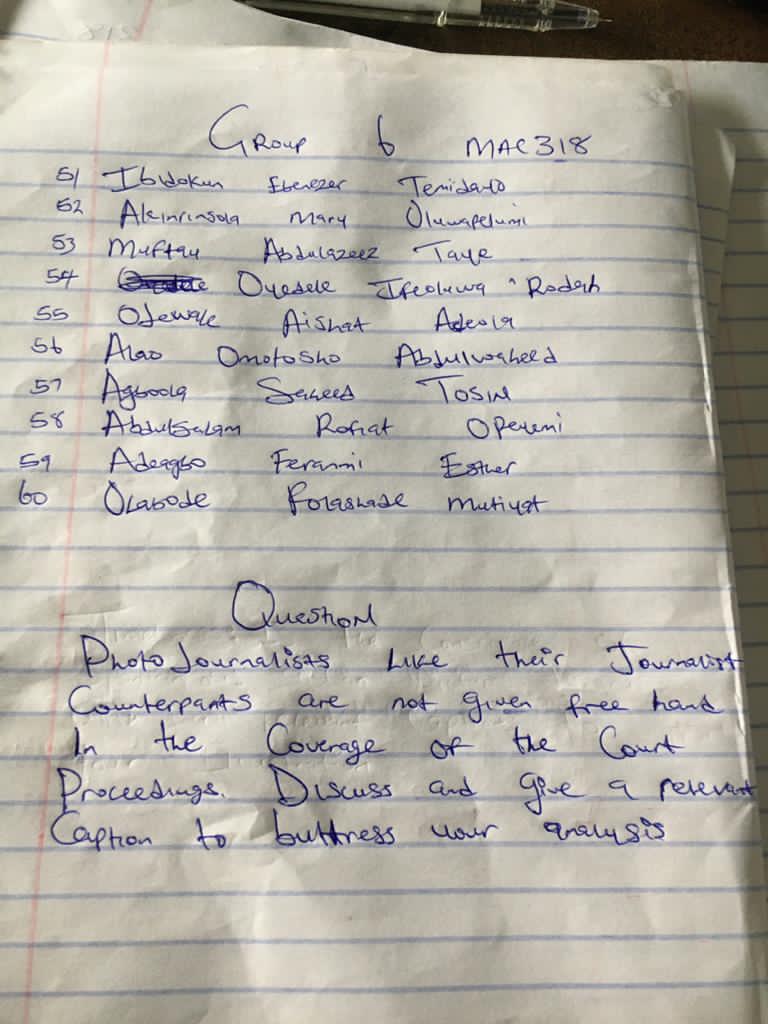 Group 6 MAC318
51 Ibidokun Ebenezer Temidayo
52 Akinrinsola Mary Oluwapelumi
53 Muftau Abdulazeez Taye
54 Oyedele Ifeoluwa Rodah
55 Odewale Aishat Adeola
56 Alao Omotosho Abdulwaheed
57 Agboola Saheed Tosin
58 Abdulsalam Rofiat Opeyemi
59 Adeagbo Feranmi Esther
60 Olabode Folashade Mutiyat
Question
Photo Journalists Like their Journalist
Counterpants are not given free hand
In the Coverage of the Court
Proceedings. Discuss and give a relevant
Caption to buttress your analysis